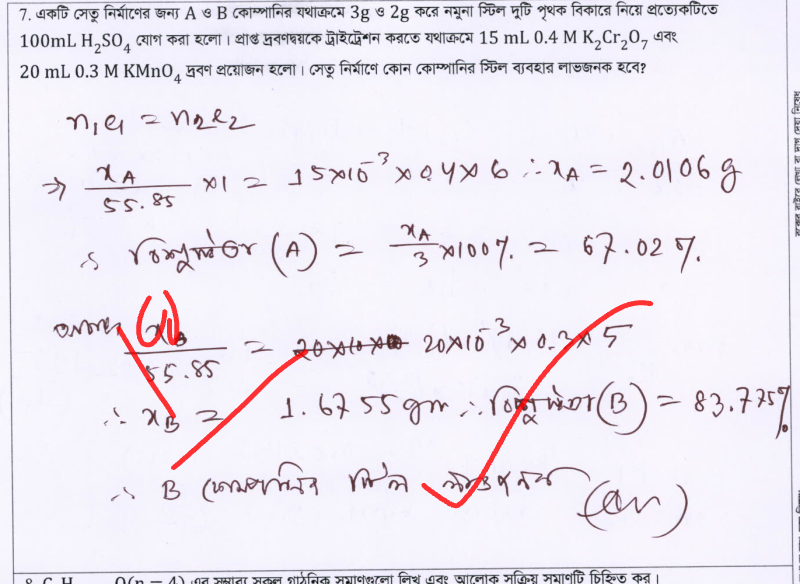 7. একটি সেতু নির্মাণের জন্য A ও B কোম্পানির যথাক্রমে 3g ও 2g করে নমুনা স্টিল দুটি পৃথক বিকারে নিয়ে প্রত্যেকটিতে
100mL H₂SO₄ যোগ করা হলো। প্রাপ্ত দ্রবণদ্বয়কে টাইট্রেশন করতে যথাক্রমে 15 mL 0.4 M K₂Cr₂O₇ এবং
20 mL 0.3 M KMnO₄ দ্রবণ প্রয়োজন হলো। সেতু নির্মাণে কোন কোম্পানির স্টিল ব্যবহার লাভজনক হবে?
n₁e₁ = n₂e₂
⇒ x_A/55.85 × 1 = 15×10⁻³ × 0.4 × 6 ∴ x_A = 2.0106 g
∴ বিশুদ্ধতা (A) = x_A/3 × 100% = 67.02%
x_B/55.85 = 20×10⁻³ × 0.3 × 5
∴ x_B = 1.6755 gm ∴ বিশুদ্ধতা (B) = 83.775%
∴ B কোম্পানির স্টিল লাভজনক (Ans)
8. C₄H O(n = 4) এর সম্ভাব্য সকল গাঠনিক সমাণুগুলো লিখ এবং আলোক সক্রিয় সমাণুটি চিহ্নিত কর।